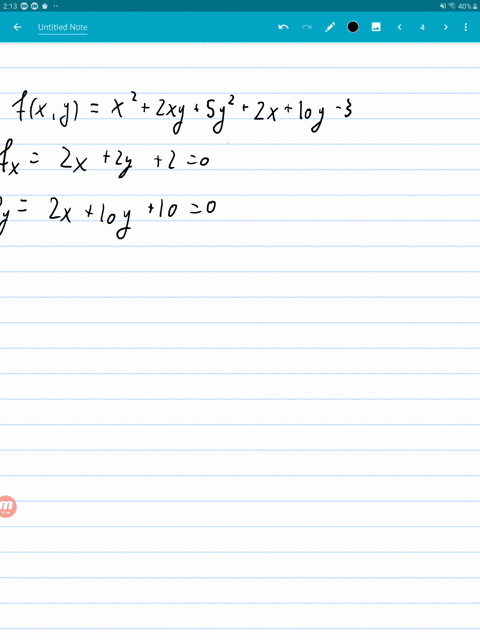 2:13 40%
Untitled Note 4
f(x,y) = x² + 2xy + 5y² + 2x + 10y - 3
fx = 2x + 2y + 2 = 0
y = 2x + 10y + 10 = 0